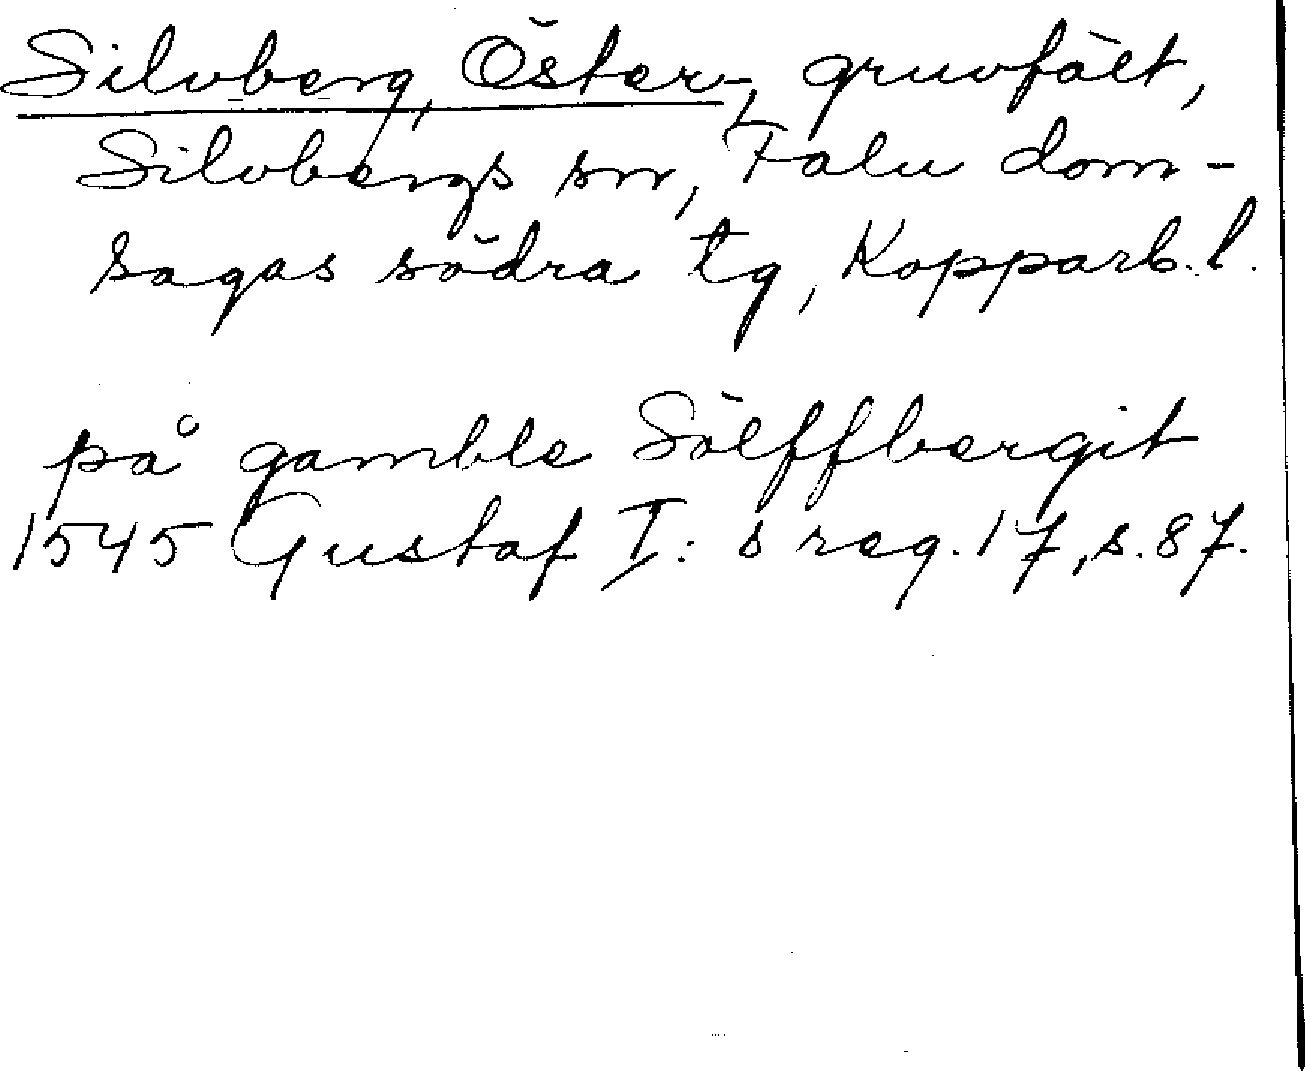 Silvberg, Öster-, gruvfält,
Silvbergs sn, Falu dom-
sagas södra tg, Kopparb. l.
på gamble Sölffbergit
1545 Gustaf I: s reg. 17, s. 87.